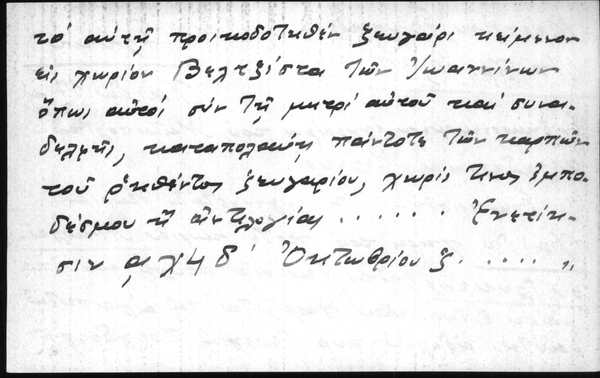 τό αὐτῇ προικοδοτηθέν ζευγάρι κείμενον
εἰς χωρίον Βελτζίστα τῶν Ἰωαννίνων
ὅπως αὐτοί σύν τῇ μητρί αὐτοῦ καί συνα-
δέλφοις, καταπολαύῃ πάντοτε τῶν καρπῶν
τοῦ ῥηθέντος ζευγαρίου, χωρίς τινος ἐμπο-
δέσμου ἤ ἀντιλογίας . . . . . . Ἐνετίη-
σιν αχ4δ' Ὀκτωβρίου ξ . . . . . „